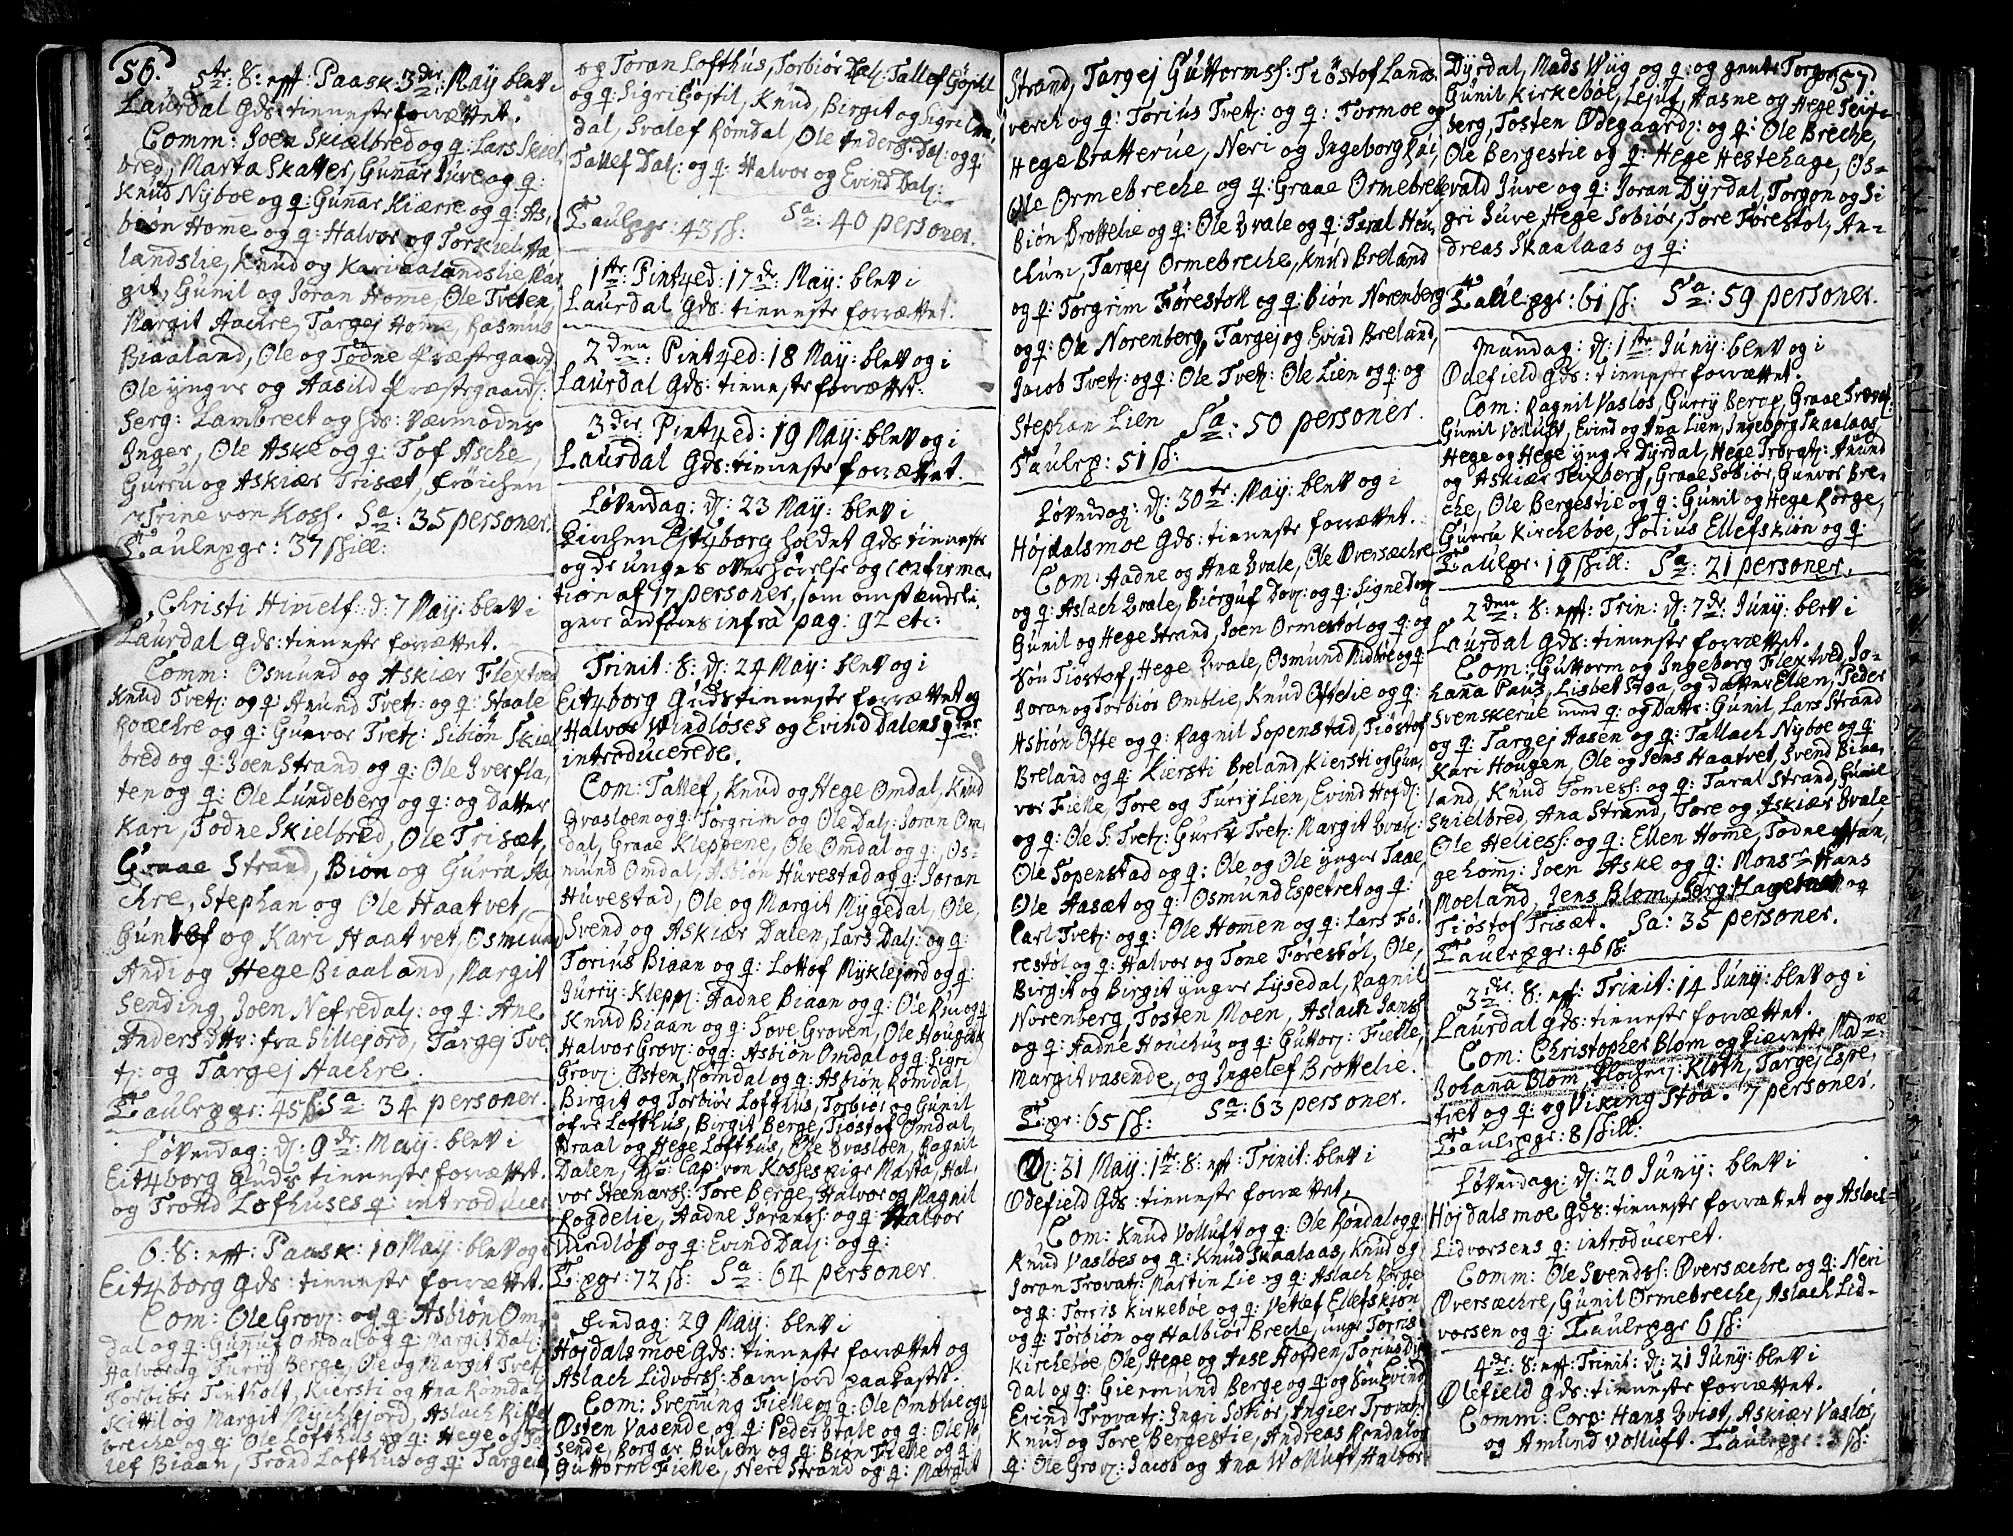 56.
5te: S: eft: Paask: 3die: May blev i
Laurdal Gds: tienneste forrættet.
Comm: Joen Skielbred og q: Lars Skiel-
bred, Marta Skatter, Gunnar Juve og q:
Knud Nyboe og q: Gunnar Kiærre og q: As-
biøn Home og q: Halvor og Torkiel Aa-
landslie, Knud og Kari Aalandslie, Mar-
git, Gunil og Joran Home, Ole Tveten,
Margit Aachre, Targej Home, Rasmus
Biaaland, Ole og Todne Præstegaard
Ole yngre og Aasild Præstegaard:
Serg: Lambrect og
Inger, Ole Aske og q: Tof Asche,
Gurru og Askiær Trisæt, Frøichen
Trine von Koss. Sa: 35 personer.
Taulepgr: 37 skill:
Christi Himelf: d: 7 May: blev i
Laurdal Gds: tienneste forrættet.
Comm: Osmund og Askiær Flextved
Knud Tvet: og q: Anund Tvet: og q: Staale
og q: Gunvor Tvet: Sibiøn Skiel-
bred og q: Joen Strand og q: Ole Sverfla-
ten og q: Ole Lundeberg og q: og datter
Kari, Todne Skielbred, Ole Trisæt,
Graae Strand, Biøn og Gurru Aa-
chre, Stephan og Ole Haatvet,
og Kari Haatvet, Osmund
Andi og Hege Biaaland, Margit
Sending, Joen Nefredal: og q: Ane
Andersdttr: fra Sillejord, Targej Tve-
t: og Targej Aachre.
Taulepgr: 45 s: Sa: 34 personer.
Løverdag: d: 9de: May: blev i
Eitzborg Guds tienneste forrættet.
og Trond Lofhuses q: introducer
6: S: eft: Paask: 10 May: blev og i
Eitzborg Gds: tienneste forrættet.
Com: Ole Grov: og q: Asbiøn Om-
dal og q: Omdal og q: Margit Dal:
Halvor og Turry Berge, Ole og Margit Tvet
Torbiør Tintholt, Kiersti og Ana Romdal
Kittil og Margit Nychlejord, Aslach
breche og q: Ole Lofthus og q: Hege og
lef Biaan, Trond Lofthus og q: Targej
og Toran Lofthus, Torbiør Dal: Tallef
og q: Sigri Knud, Birgit og Sigri Om-
dal, Svalef Romdal, Ole Anders Dal: og q:
Tallef Dal: og q: Halvor og Evind Dal:
Taulpgr: 43 s: Sa: 40 personer.
1ste: Pintzed: 17de: May: blev i
Laurdal Gds: tienneste forrættet.
2den: Pintzed: 18 May: blev og i
Laurdal Gds: tienneste forrættet.
3die: Pintzed: 19 May: blev og i
Laurdal Gds: tienneste forrættet.
Løverdag: d: 23 May: blev i
Kirchen Eitzborg holdet Gds tienneste
og de unges overhørelse og confirma-
tion af 17 personer, som omstændeli-
gere anføres infra pag: 92 etc:
Trinit: S: d: 24 May: blev og i
Eitzborg Guds tienneste forrættet og
Halvor Windløses og Evind Dalens qver
introducerede.
Com: Tallef, Knud og Hege Omdal, Knud
Gvasloen og q: Torgrim og Ole Dal: Joran Om-
dal, Graae Kleppene, Ole Omdal og q: Os-
mund Omdal, Asbiøn Huvestad og q: Joran
Huvestad, Ole og Margit Mygedal, Ole,
Svend og Askiær Dalen, Lars Dal: og q:
Torius Biaan og q: Lottof Myklejord og q:
Gurry: Klepp: Aadne Biaan og q: Ole og q:
Knud Biaan og q: Sove Groven, Ole Hougen
Halvor Grov: og q: Asbiøn Omdal og q: Sigri
Grov: Osten Romdal og q: Asbiøn Romdal,
Birgit og Torbiør Lofthus, Torbiør og Gunil
ofre Lofthus, Birgit Berge, Tiostof Omdal,
Draal og Hege Lofthus, Ole Gvasloen, Ragnil
Dalen, Cap: von Kosses Pige Marta, Hal-
vor Steenars: Tore Berge, Halvor og Magnil
Rogdelie, Aadne Jorans: og q: Halvor
Vindløs og q: Evind Dal: og q:
T: pgr: 72 s: Sa: 64 personer.
Fredag: 29 May: blev i
Højdalsmoe Gds: tienneste forrættet og
Aslach Lidvors: barn jord paakastet.
Com: Sveinung Fielle og q: Ole Omblie og q:
Osten Vasende og q: Peder Qvale og q: Ole Va-
sende, Borgar Buløn og q: Biøn Fielle og q:
Guttorm Fielle, Neri Strand og q: Margit
Strand, Targej Guttorms: Tiøstof Lands-
verch og q: Torius Tvet: og q: Tormoe og
Hege Bratterue, Neri og Ingeborg Rai,
Ole Ormebreche og q: Graae Ormebreche
Biøn Brottelie og q: Ole Qvale og q: Taral Hou-
chum, Targej Ormebreche, Knud Breland
og q: Torgrim Førestoll og q: Biøn Norenberg
og q: Ole Norenberg, Targej og Evind Breland,
Jacob Tvet: og q: Ole Tvet: Ole Lien og q: og
Stephan Lien Sa: 50 personer.
Taulep: 51 s:
Løverdag: d: 30te: May: blev og i
Højdalsmoe Gds: tienneste forrættet.
Com: Aadne og Ana Qvale, Ole Oversæchre
og q: Aslach Qvale, Biørguf Dov: og q: Signe
Gunil og Hege Strand, Joen Ormestol og q: og
Søn Tiostof, Hege Qvale, Osmund Midbøe og q:
Joran og Torbiør Omblie, Knud Offtelie og q:
Asbiøn Ofte og q: Ragnil Sopenstad, Tiøstof
Breland og q: Kiersti Breland, Kiersti og Gun-
vor Fielle, Tore og Turry Lien, Evind Hojd:
og q: Ole S: Tvet: Gurru Tvet: Margit Qval:
Ole Sopenstad og q: Ole og Ole yngre Taae,
Ole Aasæt og q: Osmund Espetvet og q:
Carl Tvet: og q: Ole Homen og q: Lars Fø-
restol og q: Halvor og Tone Førestol, Ole,
Birgit og Birgit yngre Lysedal, Ragnil
Norenberg, Tosten Moen, Aslach Jans:
og q: Aadne Houchus og q: Guttor: Fielle,
Margit Vasende, og Ingelef Brottelie.
T: pgr: 65 s: Sa: 63 personer.
D: 31 May: 1ste: S: eft: Trinit: blev i
Ødefield Gds: tienneste forrættet.
Com: Knud Volluft og q: Ole Rondal og q:
Knud Vasloes og q: Knud Skaalaas, Knud og
Joran Trovat: Martin Lie og q: Aslach Rorge
og q: Torgis Kirkebøe og q: Vetlef Ellefskion
og q: Torbiøn og Halbiør Breche, unge Torris
Kircheboe, Ole, Hege og Aase Hofden, Torius Dyr-
dal og q: Giermund Berge og q: og søn Evind
Evind Trovat: Ingri Sobiør, Ingier Trovat:
Knud og Tore Bergestie, Andreas Rondal og
q: Ole Grov: Jacob og Ana Volluft, Halvor
57.
Dyrdal, Mads Wug og q: og Torgon
Gunil Kirkeboe, Lejuf, Aasne og Hege Teipe-
berg, Tosten Ødegaard: og q: Ole Breche,
Ole Bergestie og q: Hege Hestehage, Os-
vald Juve og q: Joran Dyrdal, Torgon og Si-
gri Juve, Hege Sobiør, Tore Forestol, An-
dreas Skaalaas og q:
Taulepgr: 61 s: Sa: 59 personer.
Mandag: d: 1ste: Juny: blev og i
Ødefield Gds: tienneste forrættet.
Com: Ragnil Vaslos, Gurry Berge, Graae Trovat:
Gunil Volluft, Evind og Ana Lien, Ingeborg Skaalaas,
Hege og Hege yngre Dyrdal, Hege Trovat: Anund
og Askiær Teipeberg, Graae Sobiør, Gunvor Bre-
che, Ole Bergestie og q: Gunil og Hege Rorge,
Gurru Kircheboe, Torius Ellefskiøn og q:
Taulpgr: 19 skill: Sa: 21 personer.
2den: S: eft: Trin: d: 7de: Juny: blev i
Laurdal Gds: tienneste forrættet.
Com: Guttorm og Ingeborg Flextved, Jo-
hana Paus, Lisbet Stoa, og datter Ellen, Peder
Svenskerue med q: og Datter: Gunil, Lars Strand
og q: Targej Aasen og q: Tallach Nyboe og q:
Kari Hougen, Ole og Jens Haatvet, Svend Biaa-
land, Knud Tomes: og q: Taral Strand, Gunil
Skielbred, Ana Strand, Tore og Askiær Qvale
Ole Helies: og q: Ellen Home, Todne
ge hom: Joen Aske og q: Monsr Hans
Moeland, Jens Blom, Sergt og
Tiostof Trisæt. Sa: 35 personer.
Taulepgr: 46 s:
3die: S: eft: Trinit: 14 Juny: blev og i
Laurdal Gds: tienneste forrættet.
Com: Christopher Blom og Kiereste Madme:
Johana Blom, Kloth, Targej Espe-
tvet og q: og Viking Stoa. 7 personer.
Taulepgr: 8 skill:
Løverdag: d: 20 Juny: blev i
Højdalsmoe Gds: tienneste forrættet og Aslach
Lidvorsens q: introduceret.
Comm: Ole Svends: Oversæchre og q: Neri
Oversæchre, Gunil Ormebreche, Aslach Lid-
vorsen og q: Taulepgr 6 s:
4de: S: eft: Trinit: d: 21 Juny: blev i
Ødefield Gds: tienneste forrættet.
Comm: Corp: Hans Qvist, Askiær Vaslos,
og Amund Volluft. Taulepgr: 3 s: